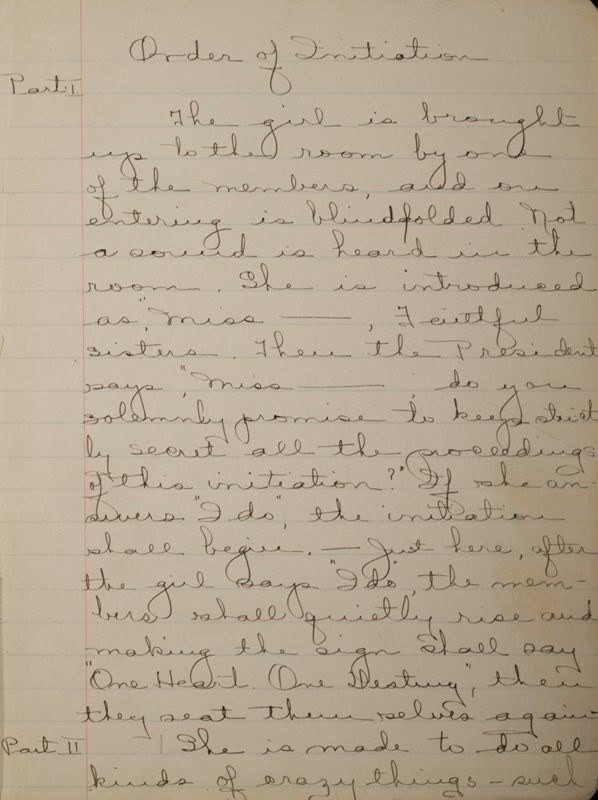 Order of Initiation
Part I
The girl is brought
up to the room by one
of the members, and on
entering is blindfolded Not
a sound is heard in the
room. She is introduced
as, "Miss ——, Faithful
sisters. Then the President
says, "Miss ——, do you
solemnly promise to keep strict
ly secret all the proceedings
of this initiation?" If she an-
swers "I do", the initiation
shall begin. — Just here, after
the girl says "I do", the mem-
bers shall quietly rise and
making the sign shall say
"One Heart. One Destiny", then
they seat them selves again
Part II She is made to do all
kinds of crazy things - such